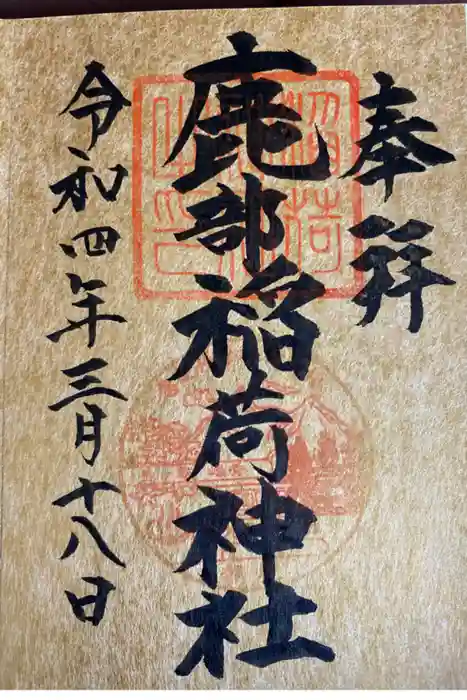 奉拜
鹿部稲荷神社
令和四年三月十八日